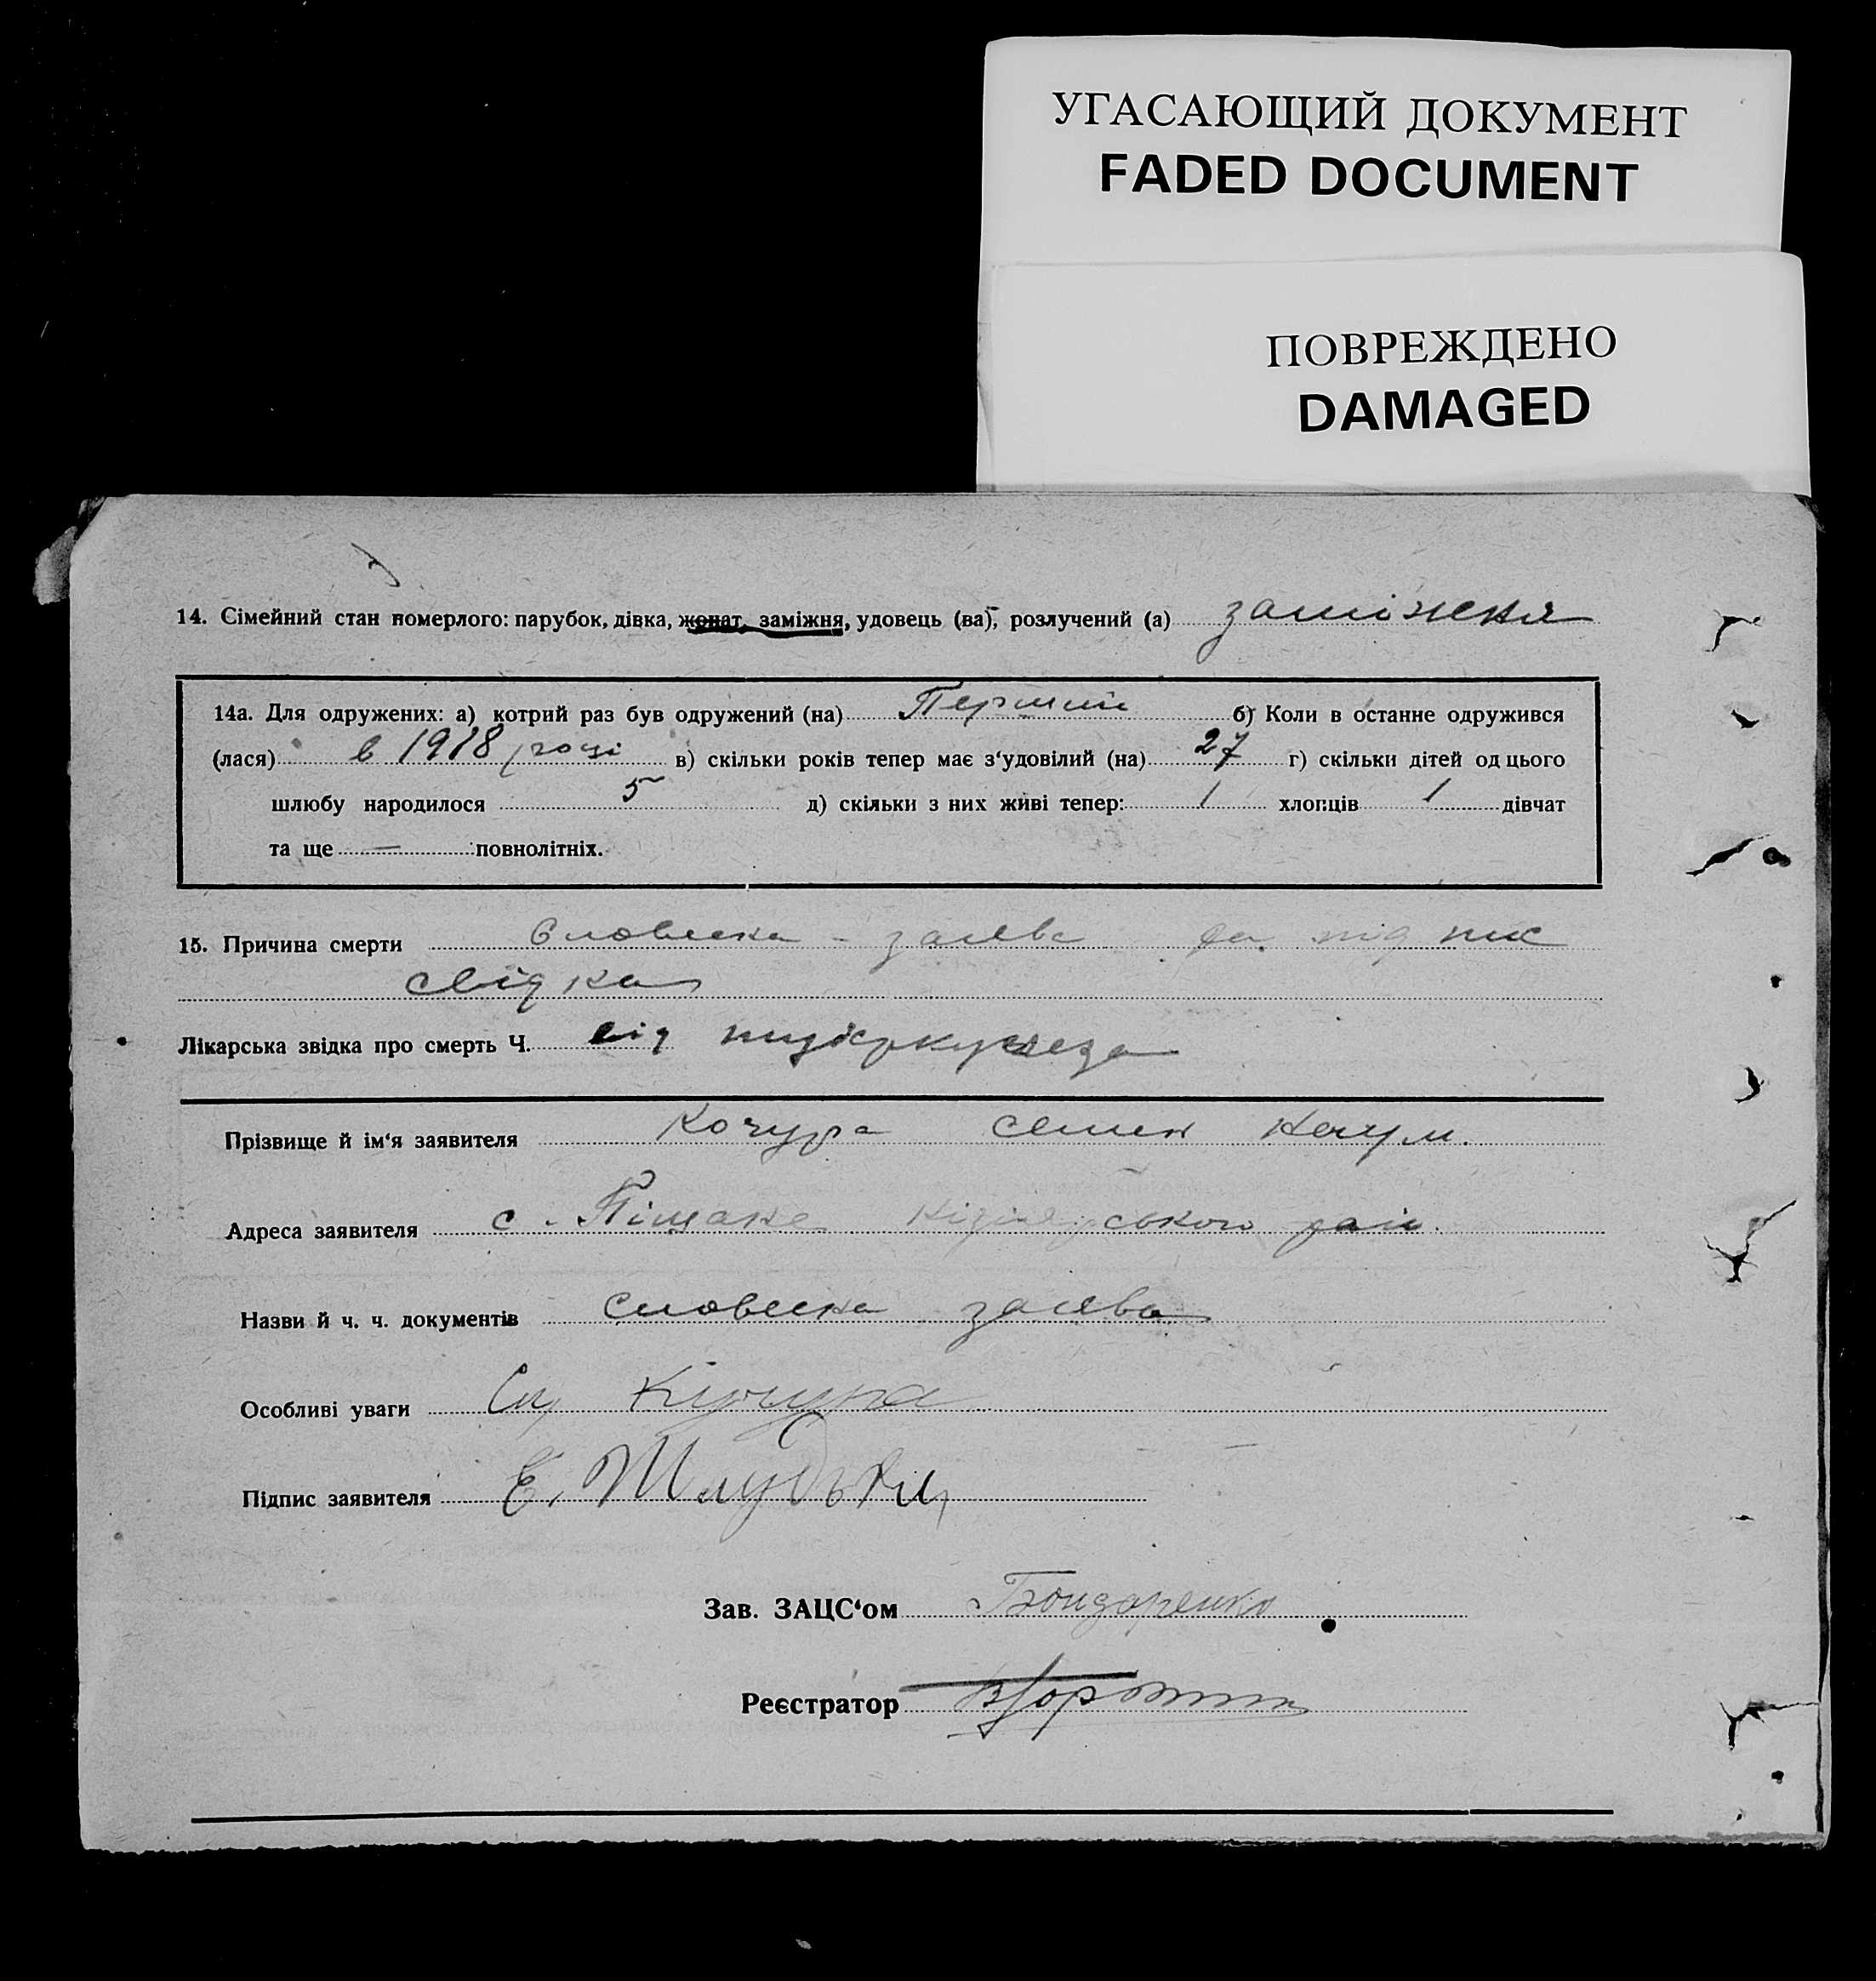 УГАСАЮЩИЙ ДОКУМЕНТ
FADED DOCUMENT
ПОВРЕЖДЕНО
DAMAGED
14. Сімейний стан померлого: парубок, дівка, жонат, заміжня, удовець (ва), розлучений (а) заміжня
14а. Для одружених: а) котрий раз був одружений (на) Перший б) Коли в останне одружився
(лася) в 1918 році в) скільки років тепер має з‘удовілий (на) 27 г) скільки дітей од цього
шлюбу народилося 5 д) скільки з них живі тепер: 1 хлопців 1 дівчат
та ще — повнолітніх.
15. Причина смерти Словесна - заява за підпис
свідка
Лікарська звідка про смерть Ч. від
Прізвище й ім‘я заявителя Кочура Семен Наум.
Адреса заявителя с. Піщане ського рай.
Назви й ч. ч. документів Словесна заява
Особливі уваги
Підпис заявителя Е.
Зав. ЗАЦС‘ом Бондаренко
Реєстратор